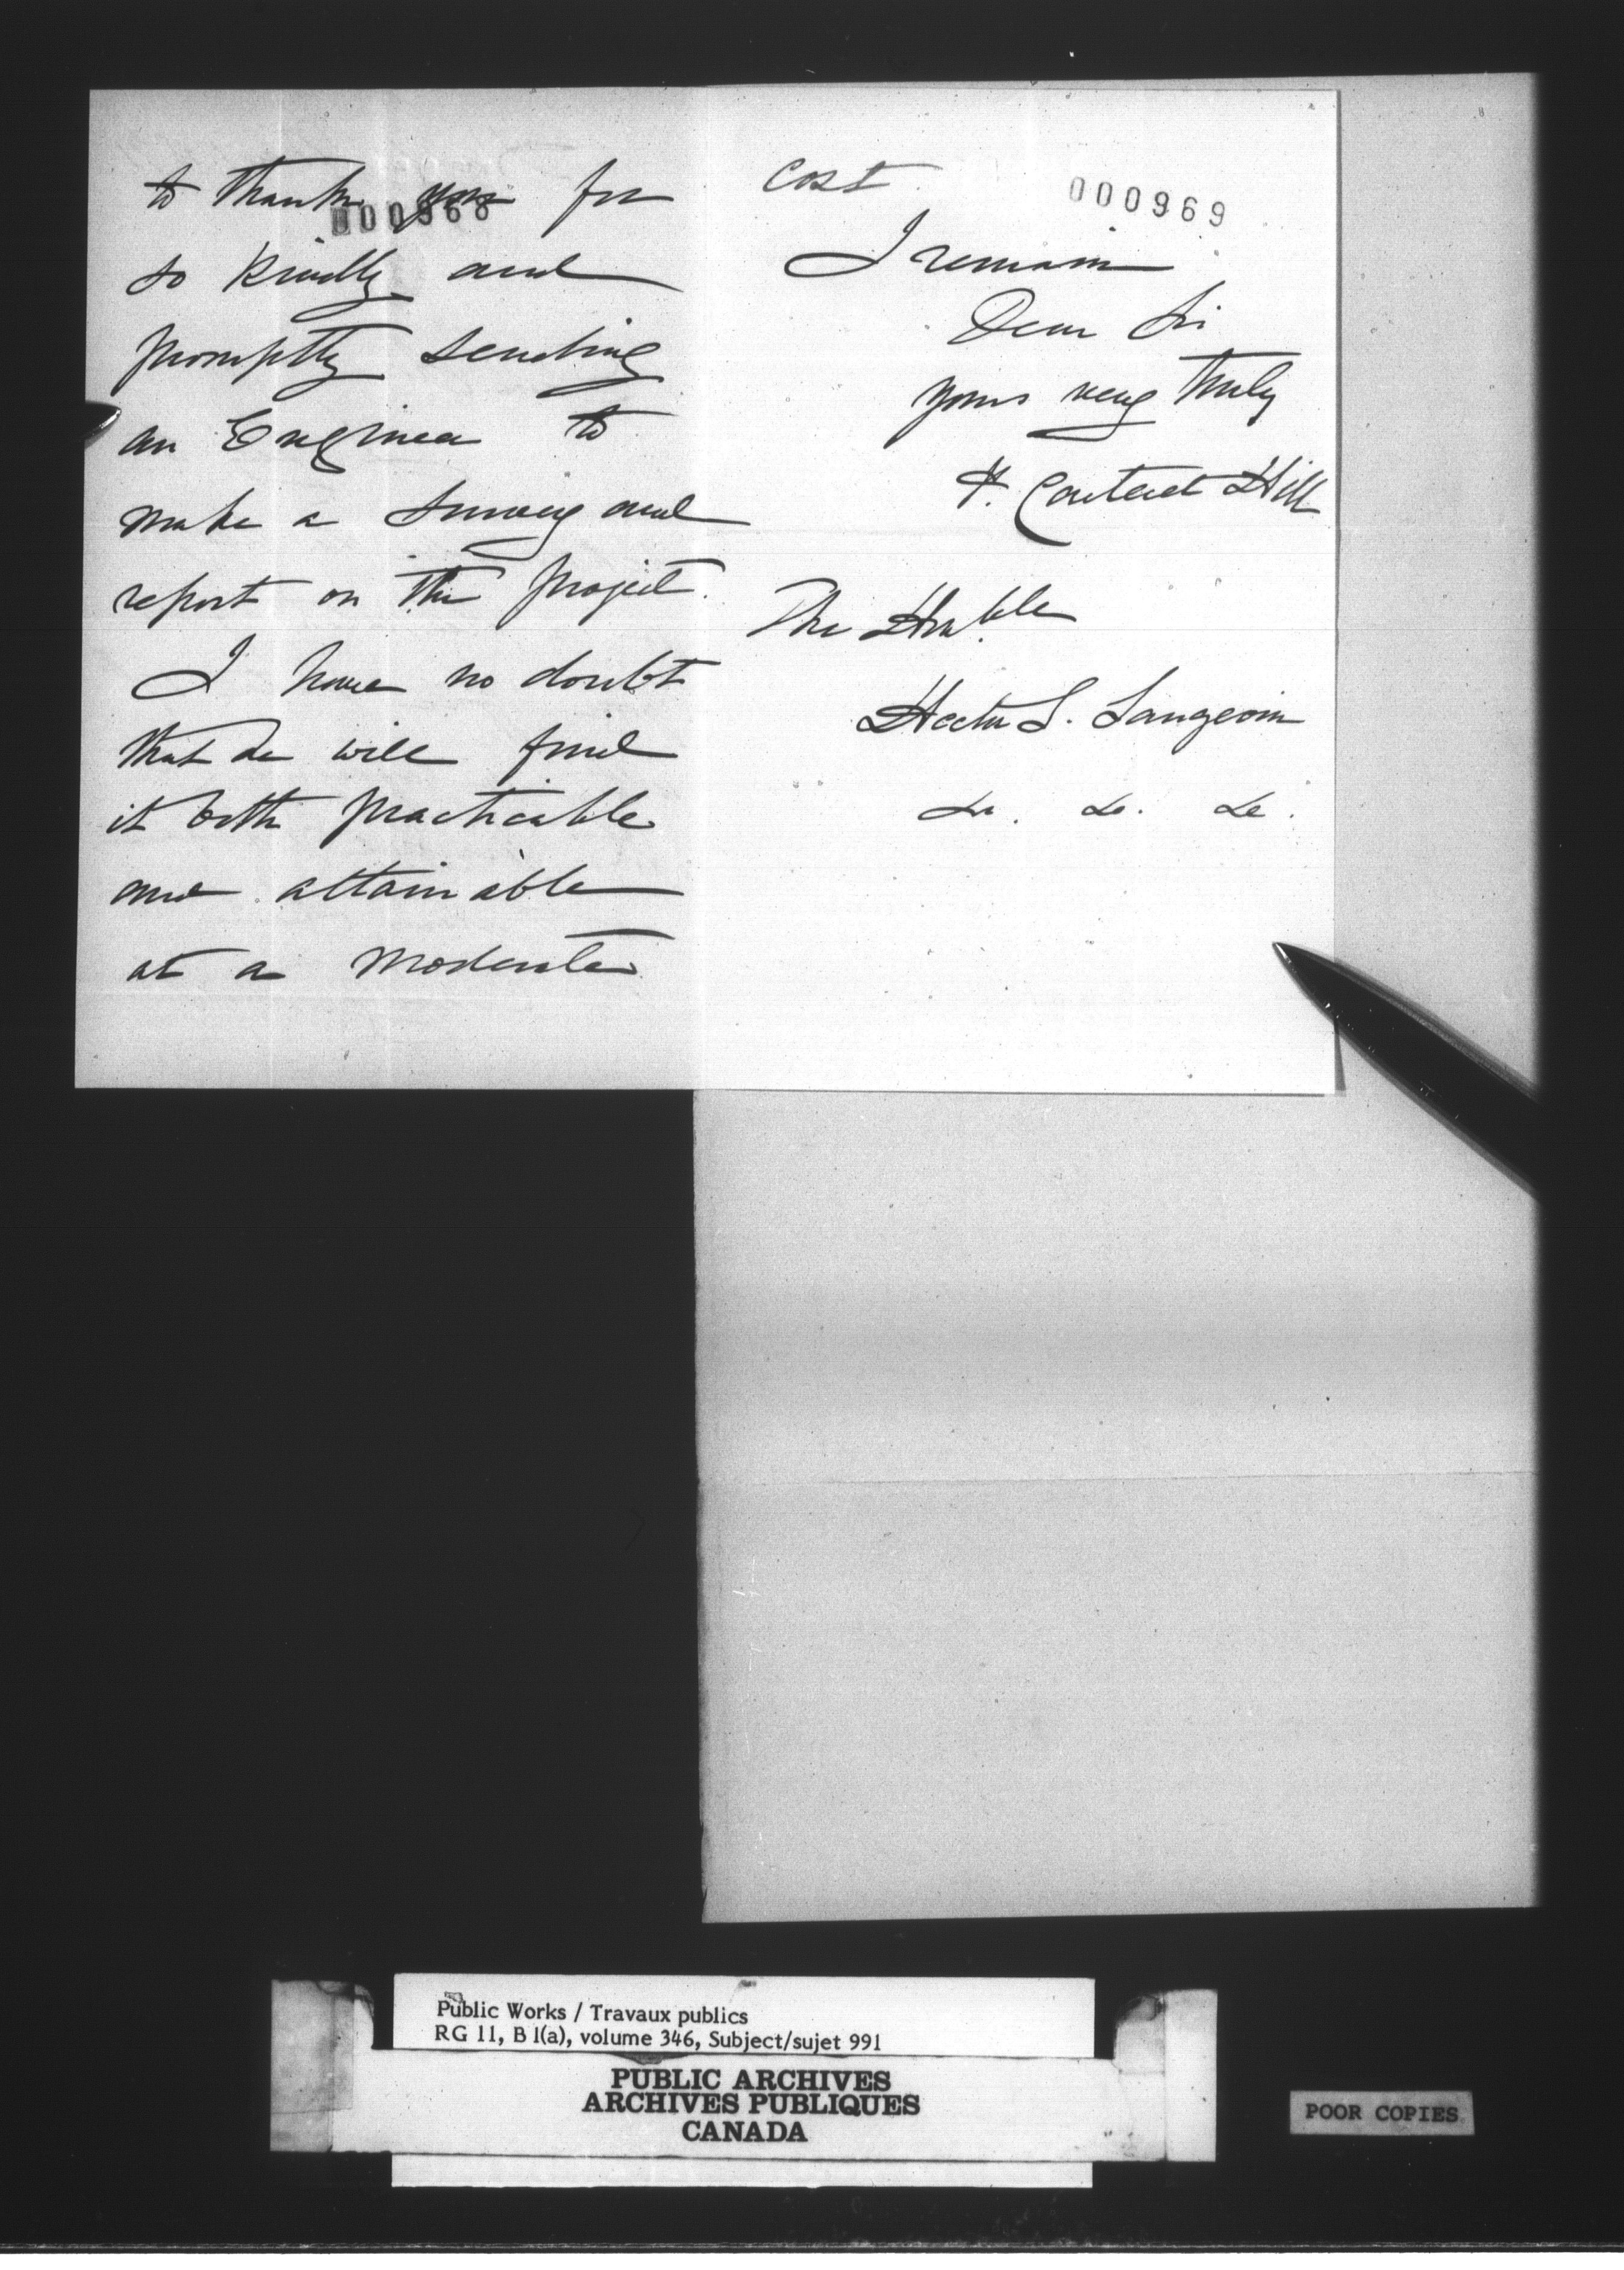 000968
to thank you for
so kindly and
promptly sending
an Engineer to
make a survey and
report on the project.
I have no doubt
that he will find
it both practicable
and attainable
at a moderate
000969
cost.
I remain
Dear Sir
yours very truly
H. Carteret Hill
The Honble
Hector L. Langevin
&c. &c. &c.
Public Works / Travaux publics
RG 11, B 1(a), volume 346, Subject/sujet 991
PUBLIC ARCHIVES
ARCHIVES PUBLIQUES
CANADA
POOR COPIES